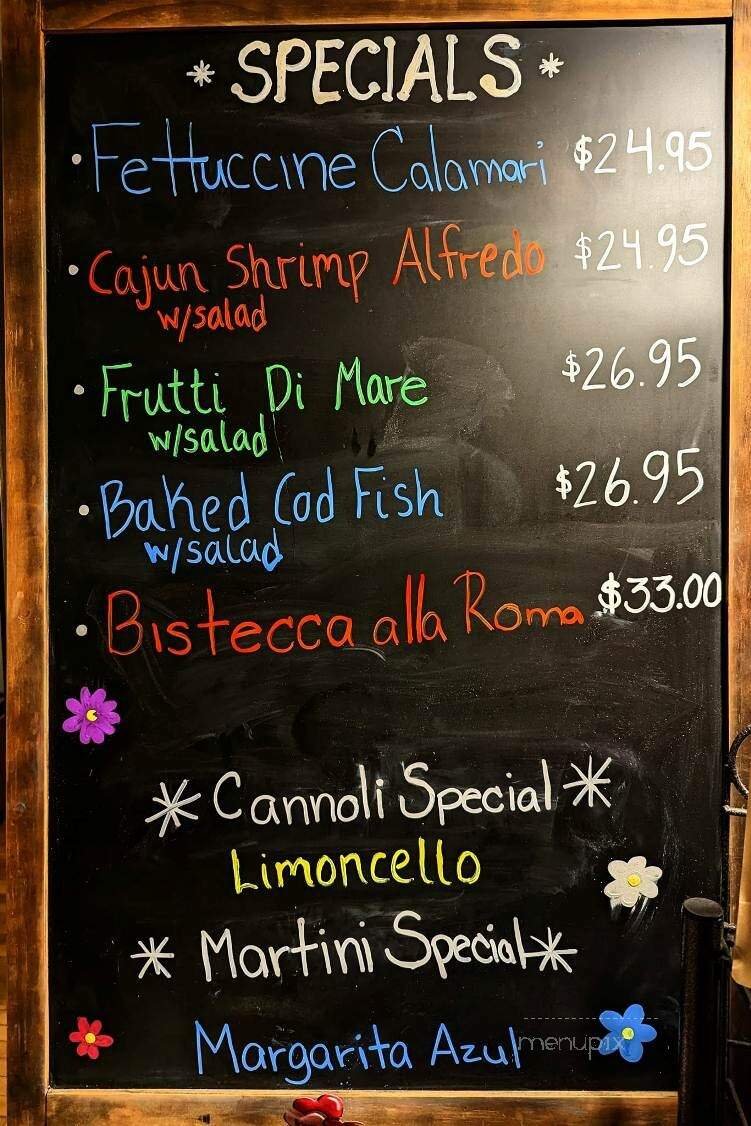 * SPECIALS *
• Fettuccine Calamari $24.95
• Cajun Shrimp Alfredo $24.95
w/salad
• Frutti Di Mare $26.95
w/salad
• Baked Cod Fish $26.95
w/salad
• Bistecca alla Roma $33.00
* Cannoli Special *
Limoncello
* Martini Special *
Margarita Azul
menupix